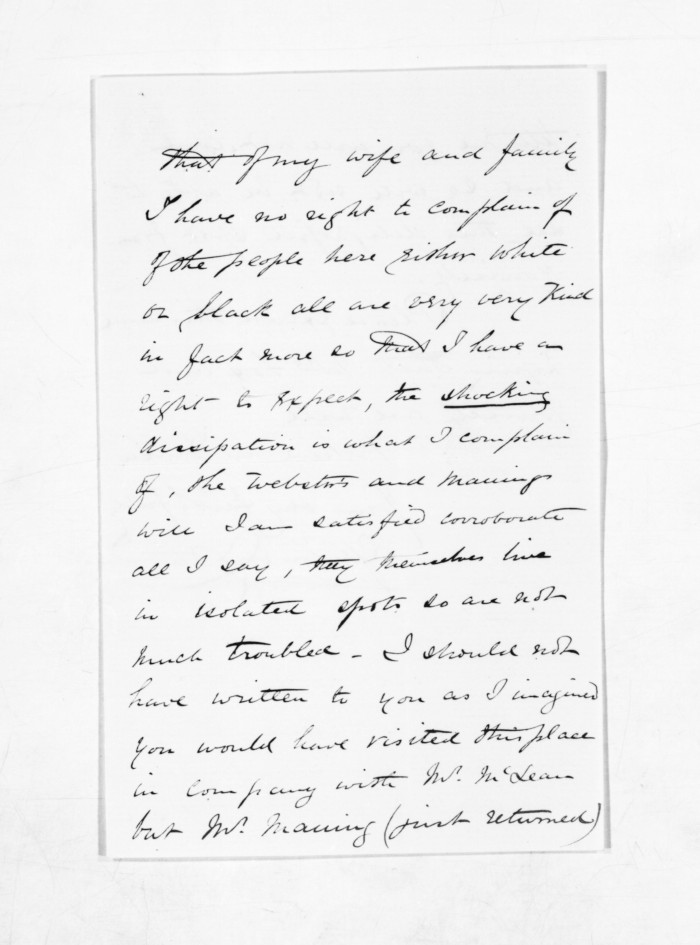 that of my wife and family
I have no right to complain of
of the people here either white
or black all are very very Kind
in fact more so that I have a
right to expect, the shocking
dissipation is what I complain
of, the Websters and Manings
will I am satisfied corroborate
all I say, they themselves live
in isolated spots so are not
much troubled - I should not
have written to you as I imagined
you would have visited this place
in company with Mr. McLean
but Mr. Maning (just returned)